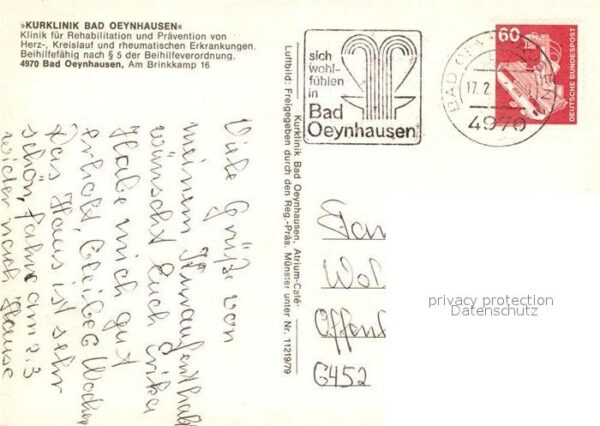 »KURKLINIK BAD OEYNHAUSEN«
Klinik für Rehabilitation und Prävention von
Herz-, Kreislauf und rheumatischen Erkrankungen.
Beihilfefähig nach § 5 der Beihilfeverordnung.
4970 Bad Oeynhausen, Am Brinkkamp 16
sich
wohl-
fühlen
in
Bad
Oeynhausen
BAD OEYNHAUSEN
17.2
4970
60
DEUTSCHE BUNDESPOST
Kurklinik Bad Oeynhausen, Atrium-Café
Luftbild: Freigegeben durch den Reg.-Präs. Münster unter Nr. 11219/79
Viele Grüße von
meinem Kuraufenthalt
wünscht Euch Erika
Habe mich gut
erholt, bleibe 6 Wochen
das Haus ist sehr
schön, fahre am 2.3
wieder nach Hause
Fam
Wol
Offenb
6452
privacy protection
Datenschutz